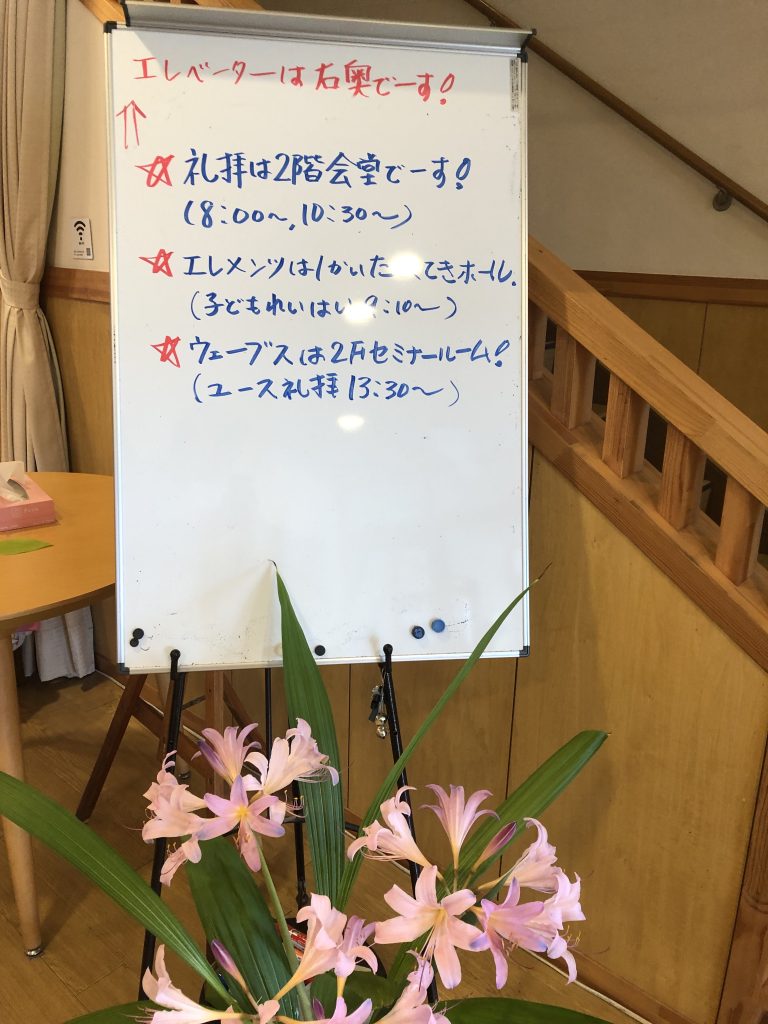 エレベーターは右奥でーす!
☆ 礼拝は2階会堂でーす!
(8:00〜, 10:30〜)
☆ エレメンツは1かいた てきホール.
(子どもれいはい 9:10〜)
☆ ウェーブスは2Fセミナールーム!
(ユース礼拝 13:30〜)